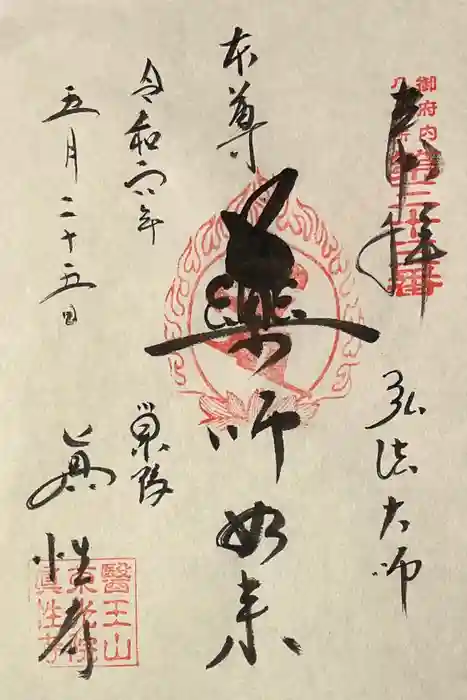 御府内
八十八ヶ所
第三十三番
奉拝
弘法大師
本尊
薬師如来
令和 年
五月二十五日
巣鴨
眞性寺
醫王山
東光院
眞性寺